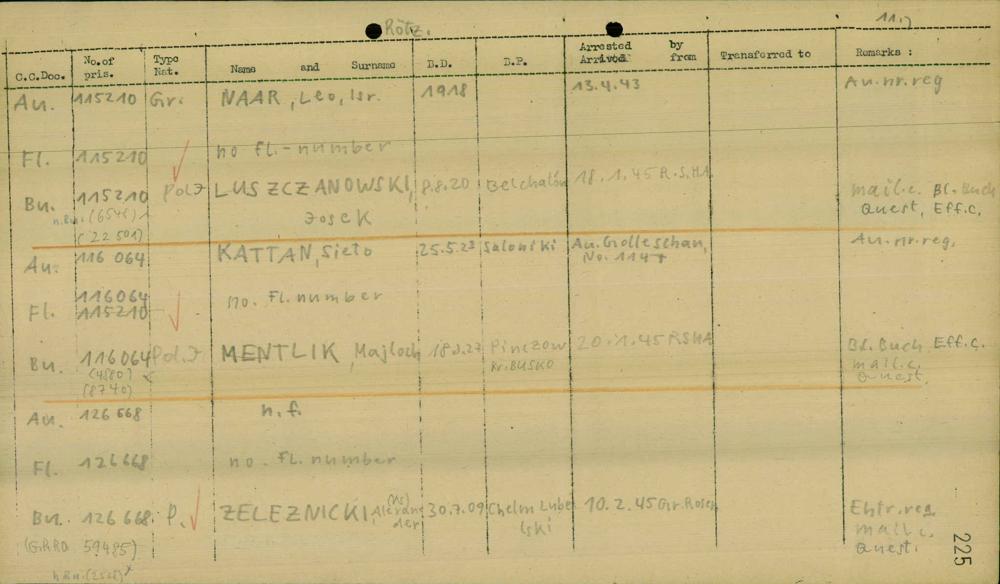 Rötz.
11.)
C.C.Doc. No.of pris. Type Nat. Name and Surname B.D. B.P. Arrested Arrived by from Transferred to Remarks :
Au. 115210 Gr. NAAR, Leo, Isr. 1918 13.4.43 Au.nr.reg
Fl. 115210 no fl.-number
Bu. 115210 Pol.J LUSZCZANOWSKI, 8.8.20 Belchatów 18.1.45 R.S.H.A. mail.c. Bl. Buch
Josek Quest, Eff.c.
(22501)
Au. 116 064 KATTAN, Sieto 25.5.23 Saloniki Au. Golleschau, Au.nr.reg.
116064 no. Fl. number
Fl. 115210
Bu. 116064 Pol.J MENTLIK, Majloch Pinczow 20.1.45 RSHA Bl. Buch Eff.c.
(4580) Kr. BUSKO mail.c.
(8740) Quest.
Au. 126 668 n.f.
Fl. 126668 no. Fl. number
Bu. 126668 P. ZELEZNICKI, Alexander 30.7.09 Chelm Lubelski 10.2.45 Gr. Rosen
mail.c.
59485) Quest.
225